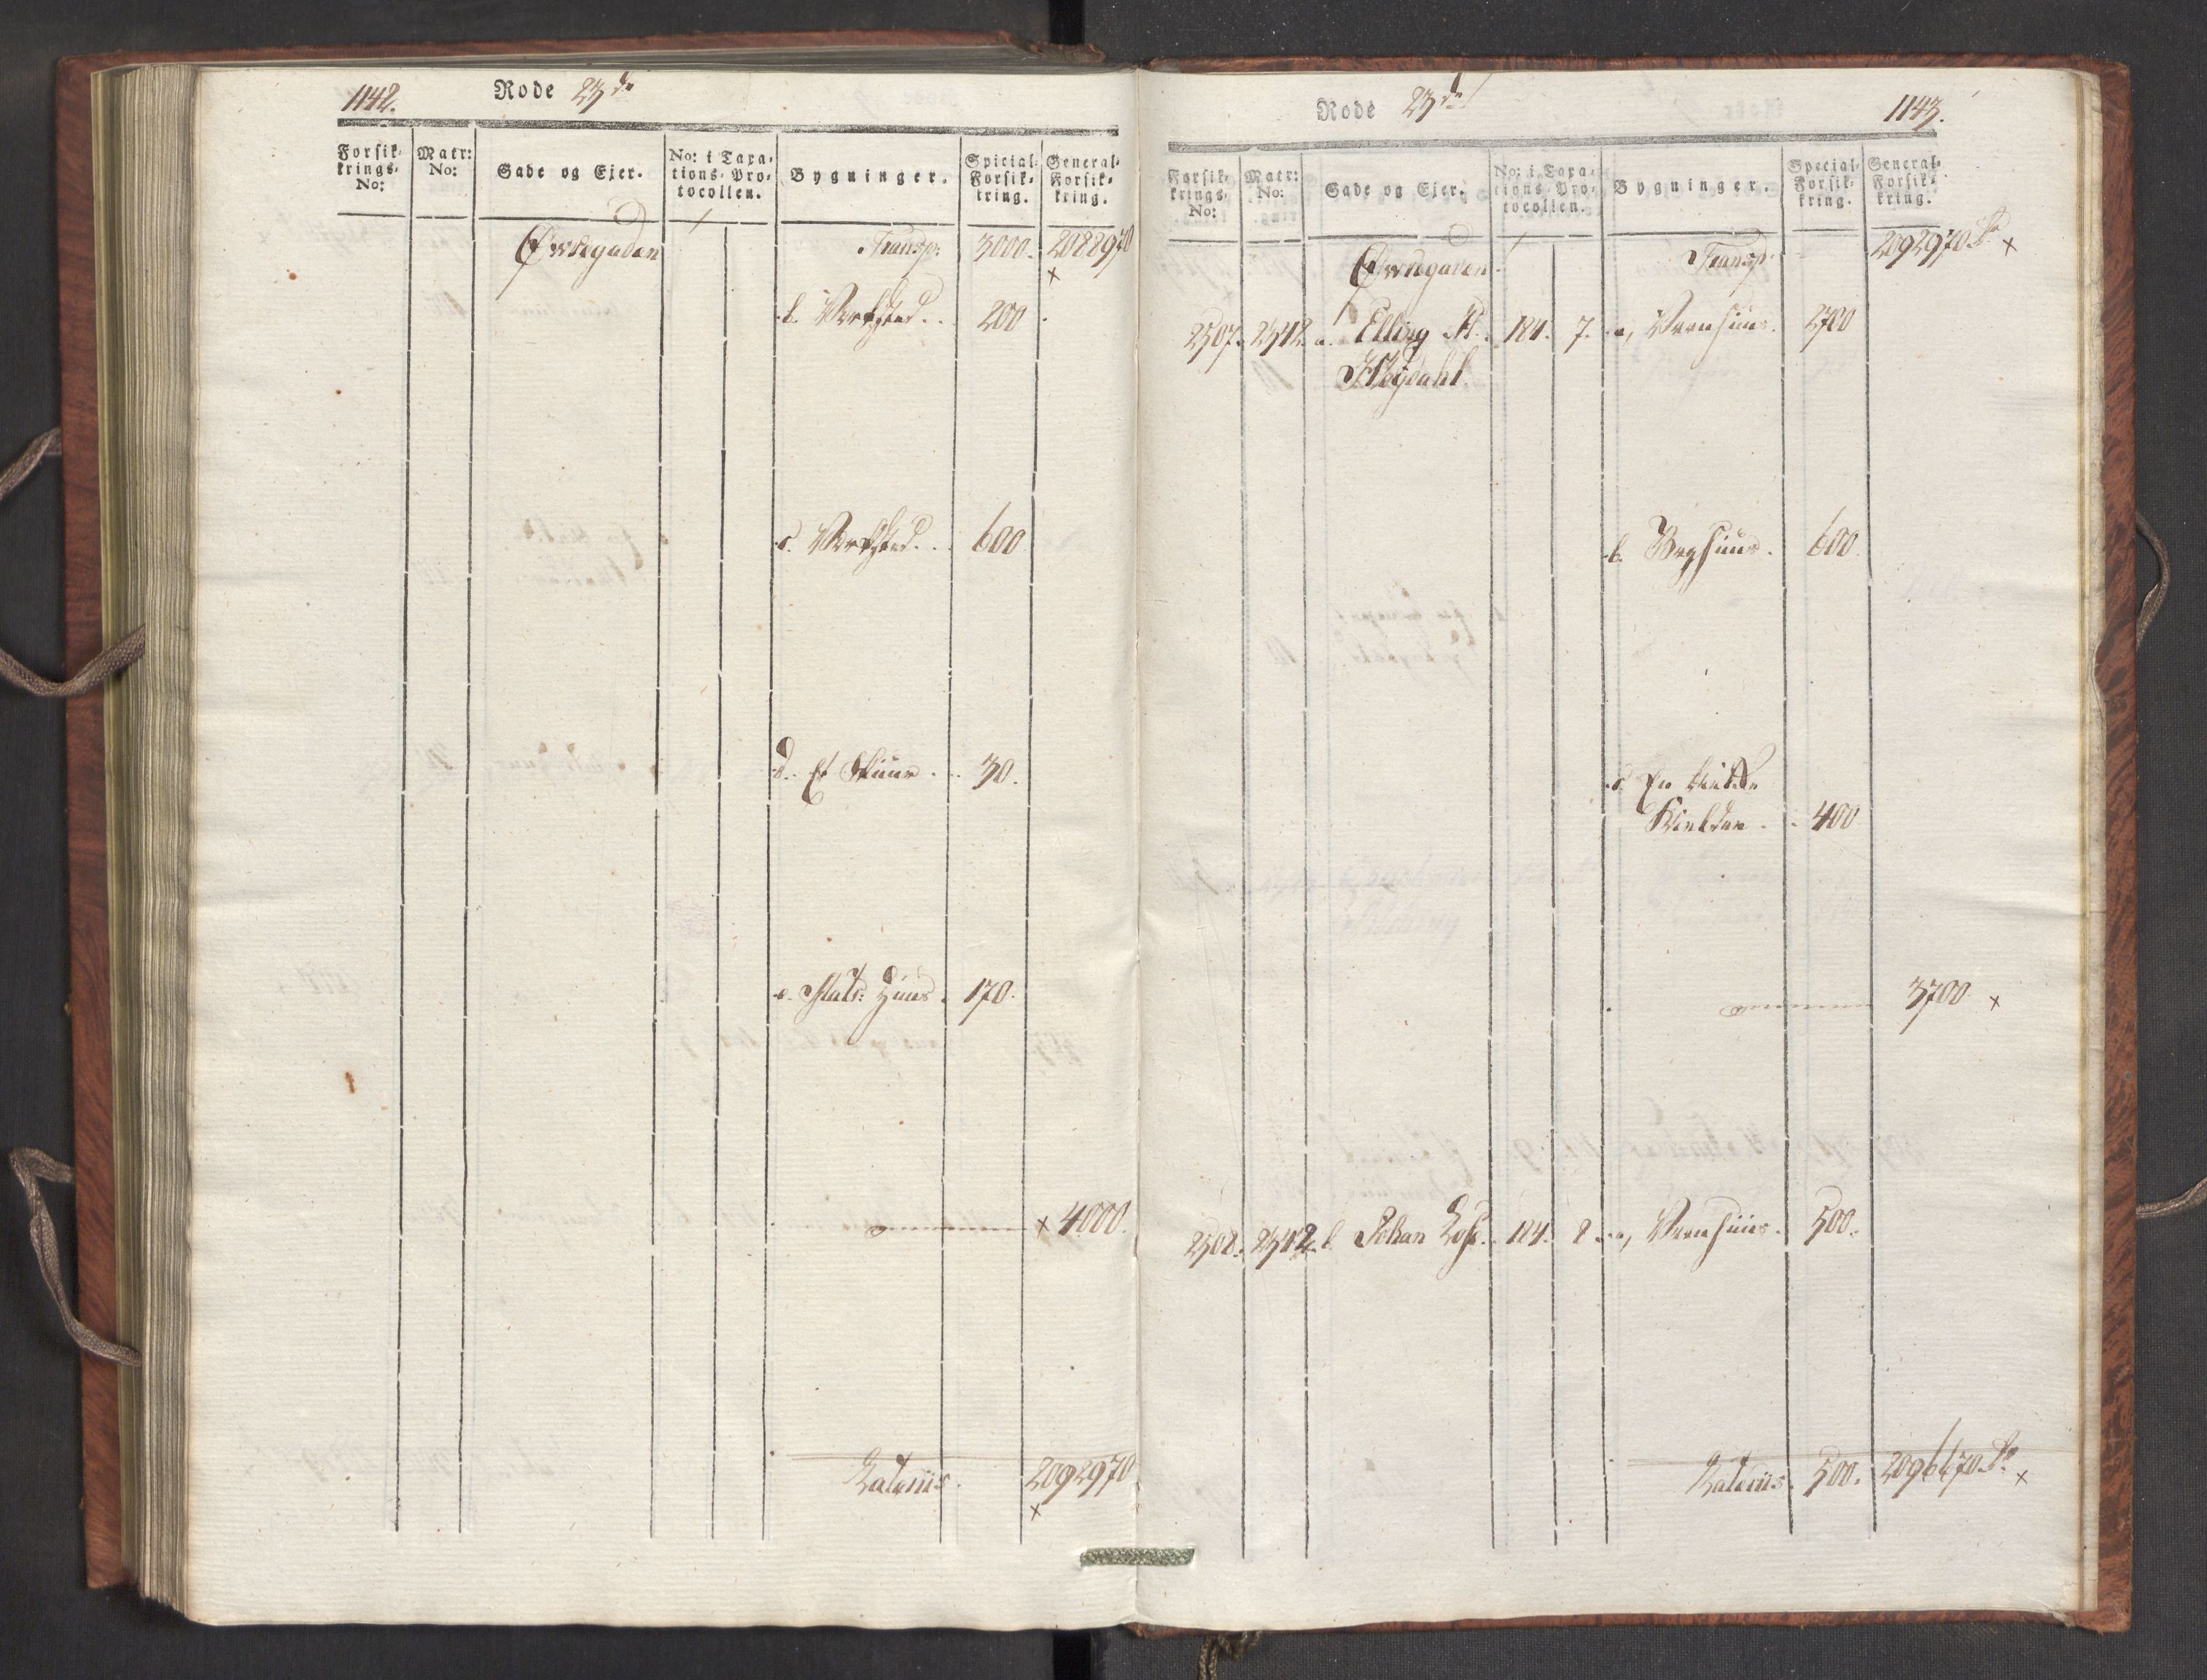 1142.
Rode 23de
Forsik-
krings-
No:
Matr:
No:
Gade og Ejer.
No: i Taxa-
tions-Pro-
tocollen.
Bygninger.
Spicial-
Forsik-
kring.
General-
Forsik-
kring.
Øvregaden Transp: 3000. 2088970
×
b. Verksted.. 200
c. Verksted.. 600
d. Et Skuur... 30.
e. Huus. 170.
× 4000.
Laterüs. 2092970
×
Rode 23de
1143.
Forsik-
krings-
No:
Matr:
No:
Gade og Ejer.
No: i Taxa-
tions-Pro-
tocollen.
Bygninger.
Special-
Forsik-
kring.
General-
Forsik-
kring.
Øvregaden. Transp: 2092970 ×
2507. 2342. a. Elling 184. 7. a, Vaanhuus. 2700
Høydahl.
b. Bryghuus. 600.
c. En
Kielder.. 400
3700 ×
2508. 2342. b. Johan 184. 8. a, Vaanhuus. 500.
Laterüs. 500. 2096670 ×